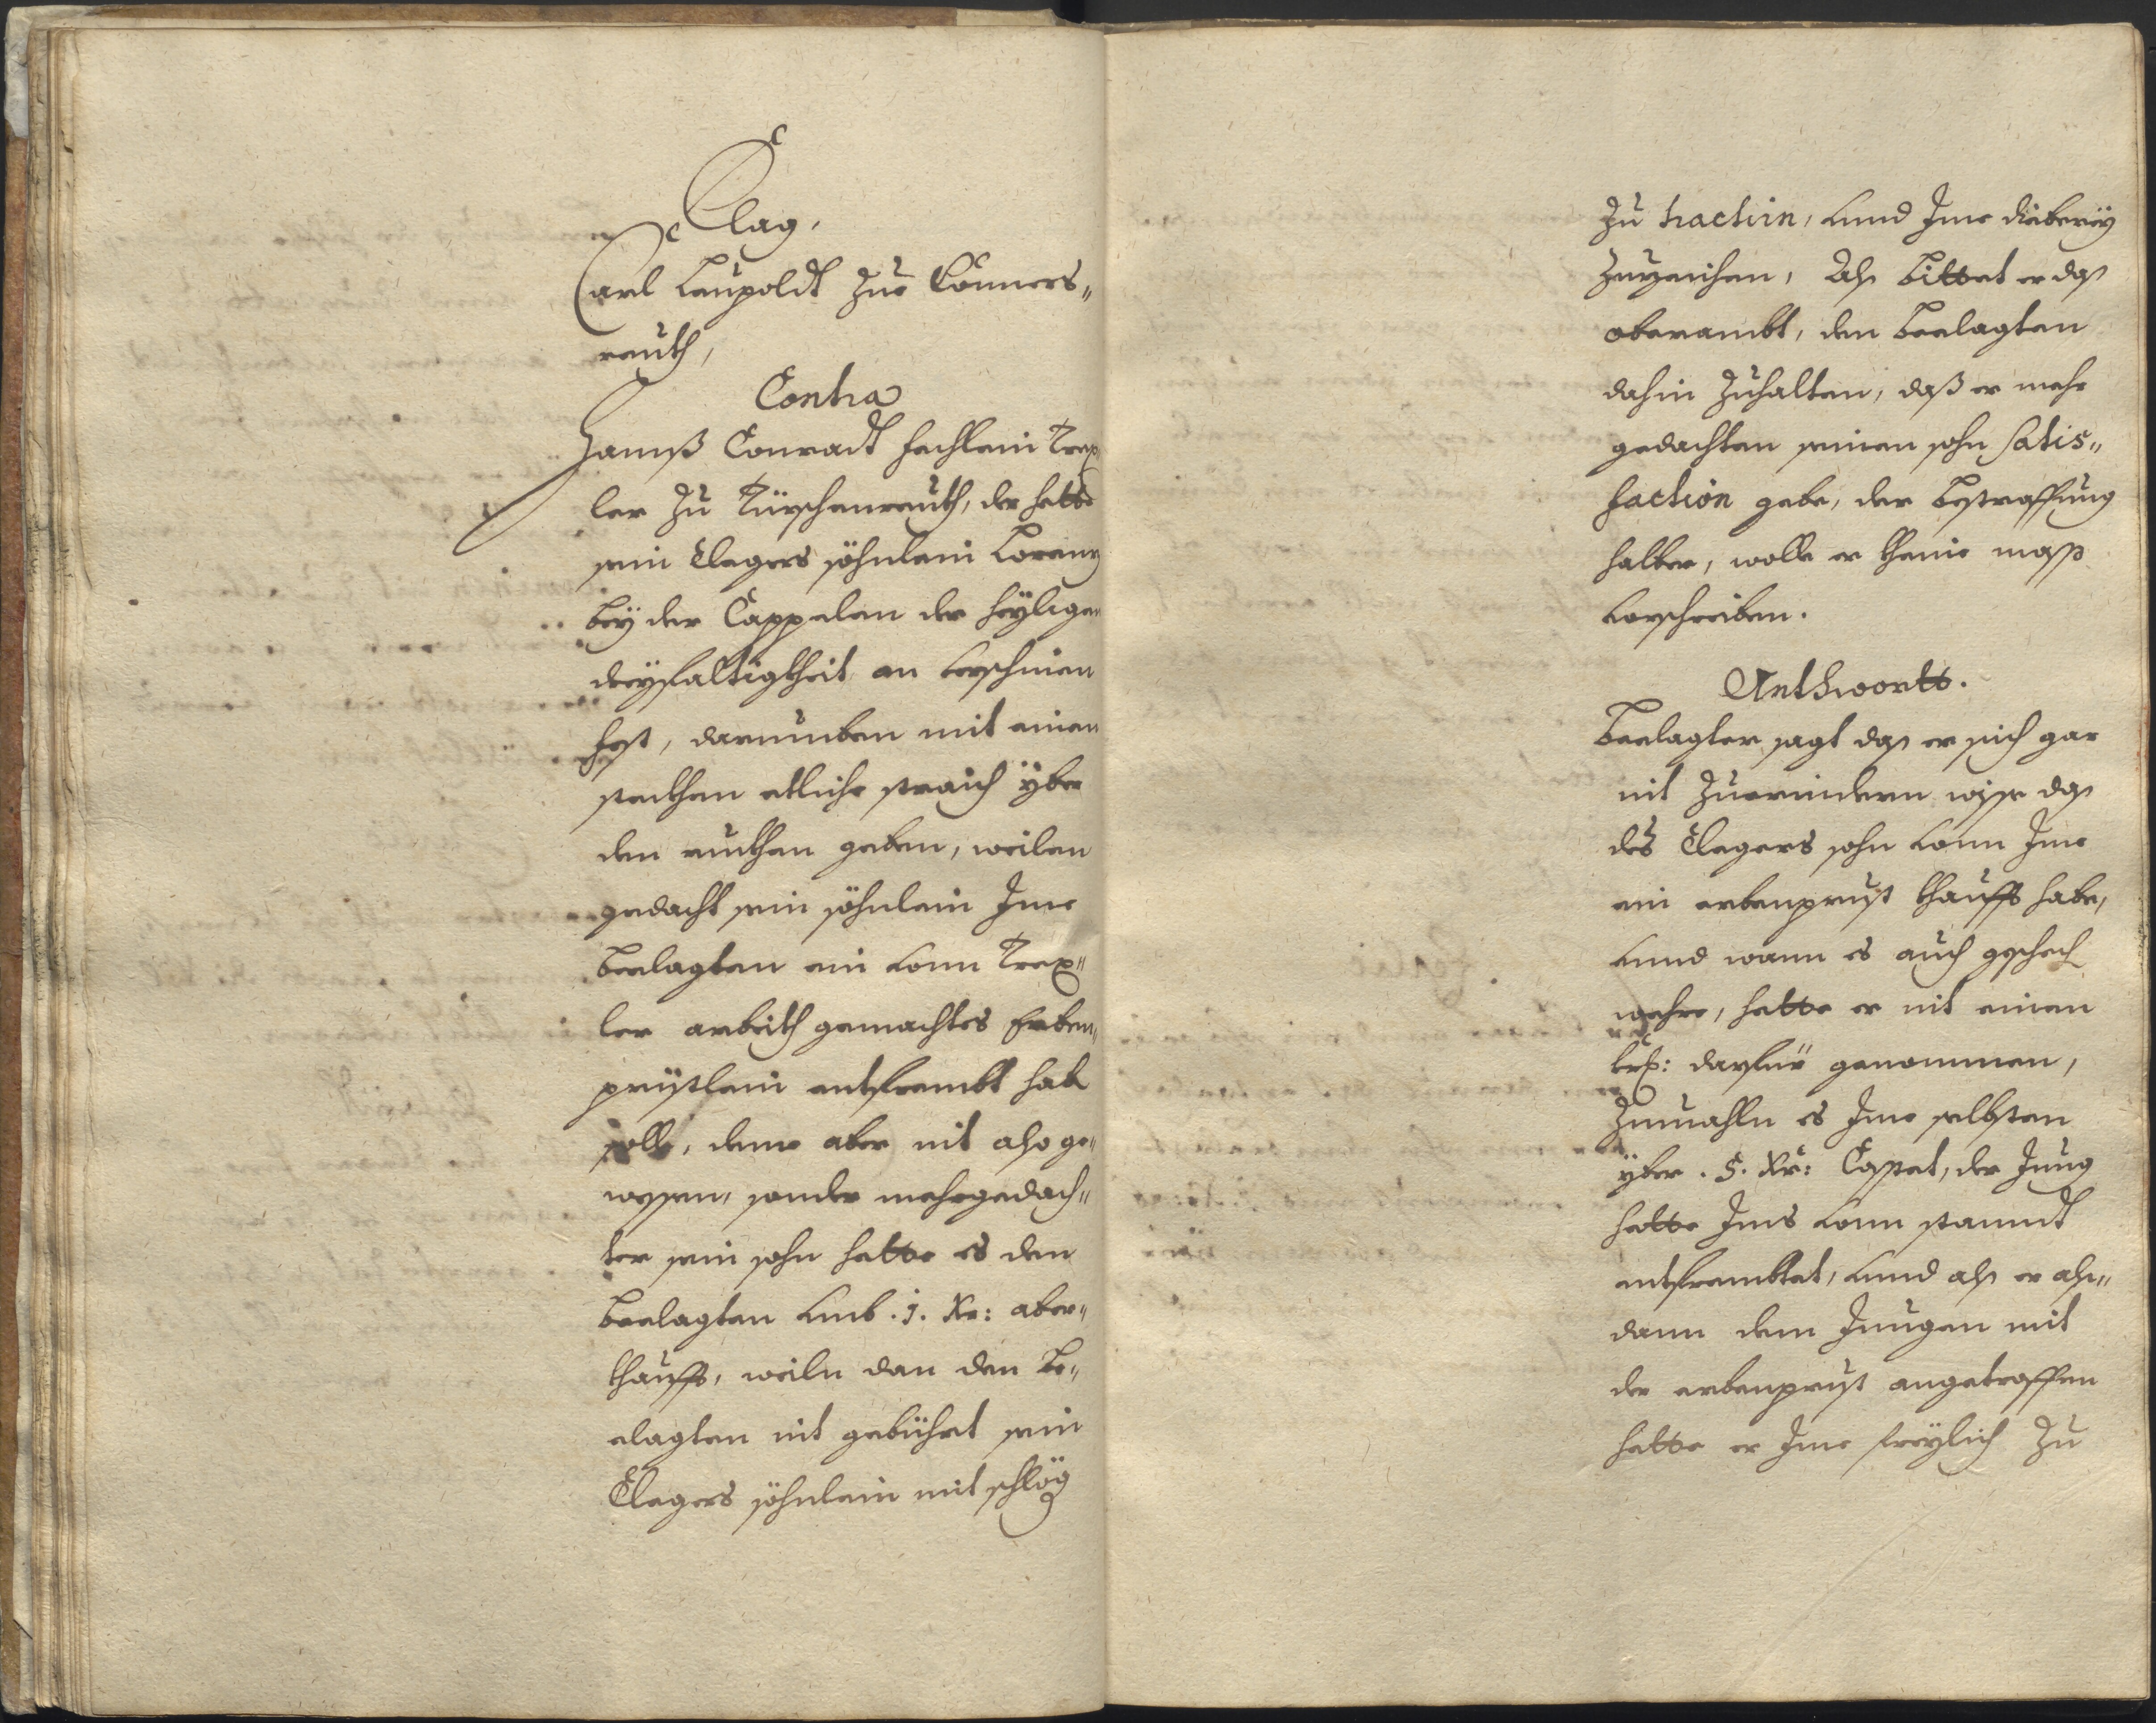 Clag.
Carl Leupoldt zue Conners„
reuth,
Contra
Hannß Conradt Hechlein Trex
ler zu Türschenreuth, der hette
sein Clagers söhnlein Lorenz
bey der Cappelen der heyligen
dreyfaltigkheit an verschinen
fest, darumben mit einen
steckhen etliche straich yber
den ruckhen geben, weilen
gedacht sein söhnlein Ime
Beclagten ein vonn Trex„
ler arbeith gemachtes Erben„
prüstlein entfrembt hab
solle, deme aber nit also ge„
wesen, sonder mehrgedach„
ter sein sohn hette es den
Beclagten umb .j. Kr: aber„
khaufft, weiln dan den Be„
clagten nit gebührt sein
Clagers söhnlein mit schlög
zu tractirn, unnd Ime dieberey
zuzeichen, Als bittet er das
oberambt, den Beclagten
dahin zuhalten, daß er mehr
gedachten seinen sohn satis„
faction gebe, der bestraffung
halber, wolle er kheine mass
vorschreiben.
Anthwortt.
Beclagter sagt das er sich gar
nit zuerindern wisse das
des Clagers sohn vonn Ime
ein erbenprust khaufft habe,
unnd wann es auch geschech
wehre, hette er nit einen
krz: darfür genommen,
zumahln es Ime selbsten
yber .5. Kr: Costet, der Jung
hette Ims vonn standt
entfrembtet, unnd als er als„
dann dem Jungen mit
der erbenprust angetroffen
hette er Ime freylich zu